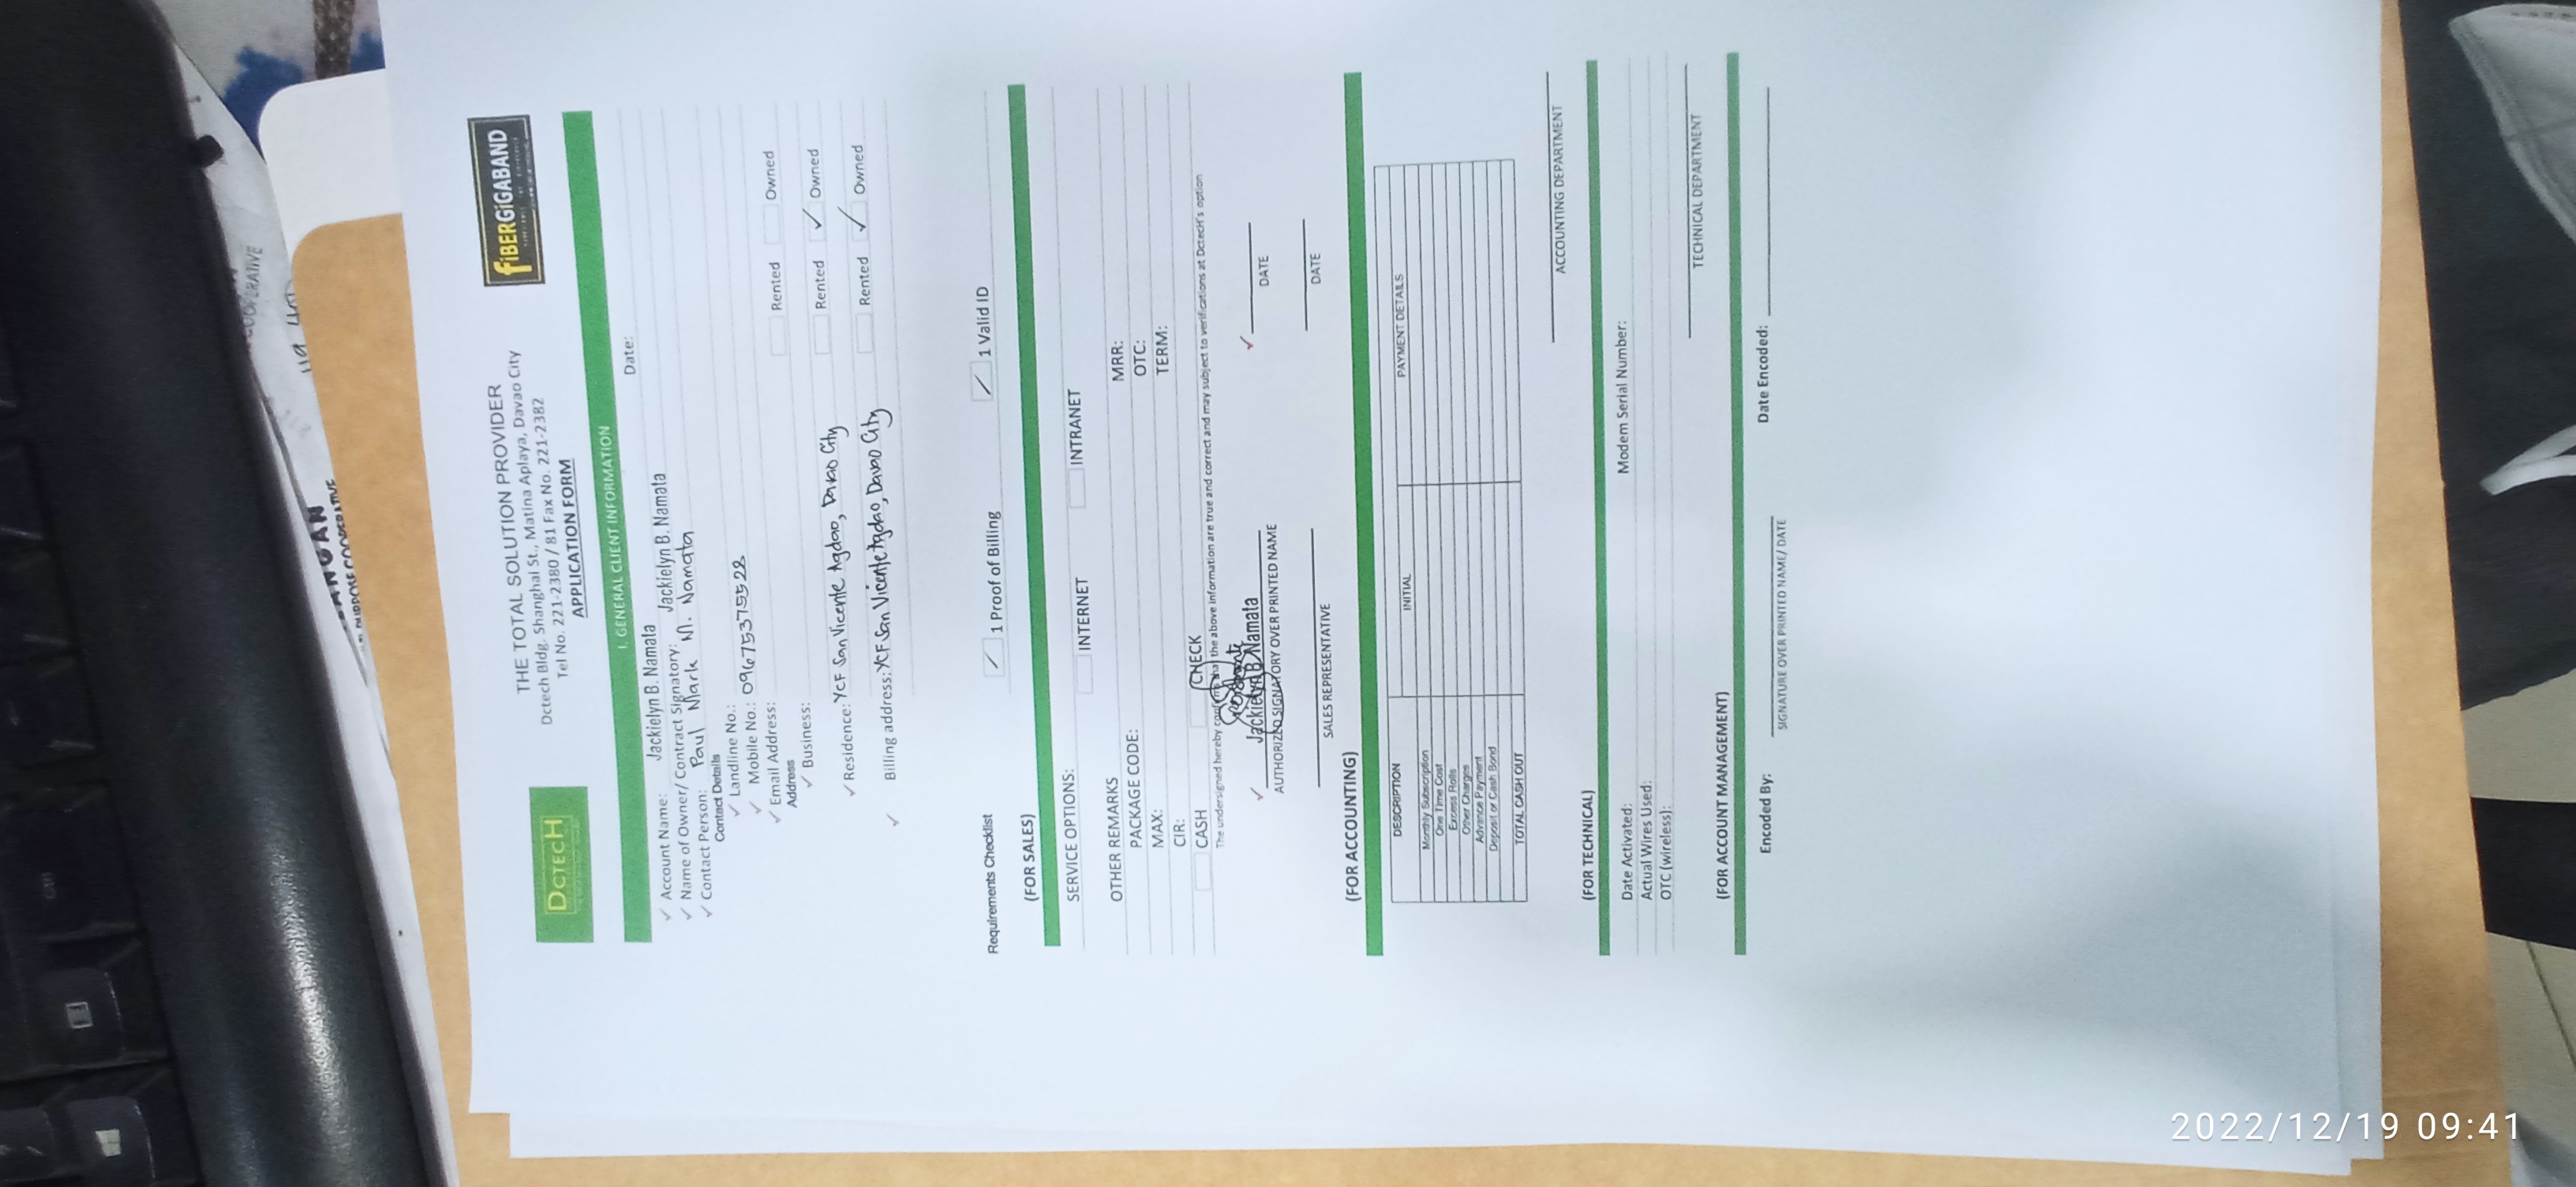 DCTECH
THE TOTAL SOLUTION PROVIDER
Dctech Bldg. Shanghai St., Matina Aplaya, Davao City
Tel No. 221-2380 / 81 Fax No. 221-2382
APPLICATION FORM
fiBERGiGABAND
I. GENERAL CLIENT INFORMATION
Date:
✓ Account Name: Jackielyn B. Namata
✓ Name of Owner/ Contract Signatory: Jackielyn B. Namata
✓ Contact Person: Paul Mark M. Namata
Contact Details
✓ Landline No.:
✓ Mobile No.: 09675375528
✓ Email Address: Rented Owned
Address
✓ Business: Rented ✓ Owned
✓ Residence: YCF San Vicente Agdao, Davao City Rented ✓ Owned
✓ Billing address: YCF San Vicente Agdao, Davao City
Requirements Checklist / 1 Proof of Billing / 1 Valid ID
(FOR SALES)
SERVICE OPTIONS: INTERNET INTRANET
OTHER REMARKS MRR:
PACKAGE CODE: OTC:
MAX: TERM:
CIR:
CASH CHECK
The undersigned hereby confirms that the above information are true and correct and may subject to verifications at Dctech's option
✓ Jackielyn B Namata ✓
AUTHORIZED SIGNATORY OVER PRINTED NAME DATE
SALES REPRESENTATIVE DATE
(FOR ACCOUNTING)
DESCRIPTION INITIAL PAYMENT DETAILS
Monthly Subscription
One Time Cost
Excess Rolls
Other Charges
Advance Payment
Deposit or Cash Bond
TOTAL CASH OUT
ACCOUNTING DEPARTMENT
(FOR TECHNICAL)
Date Activated: Modem Serial Number:
Actual Wires Used:
OTC (wireless):
TECHNICAL DEPARTMENT
(FOR ACCOUNT MANAGEMENT)
Encoded By: Date Encoded:
SIGNATURE OVER PRINTED NAME/ DATE
2022/12/19 09:41